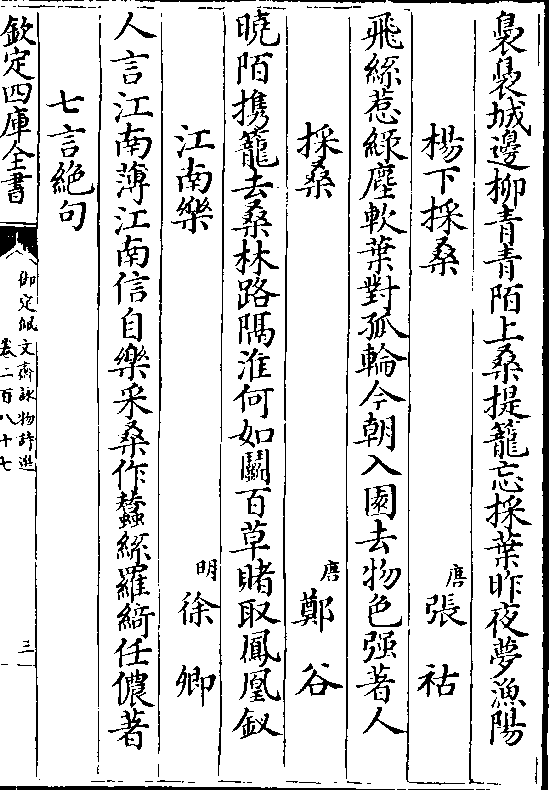 裊裊城邊柳青青陌上桑提籠忘採葉昨夜夢漁陽
楊下採桑　唐　張祜
飛絲惹緑塵軟葉對孤輪今朝入園去物色强著人
採桑　唐　鄭谷
曉陌攜籠去桑林路隔淮何如鬭百草賭取鳳凰釵
江南樂　明　徐卿
人言江南薄江南信自樂采桑作蠶絲羅綺任儂著
七言絶句
欽定四庫全書
御定佩文齋詠物詩選
卷二百八十七
三